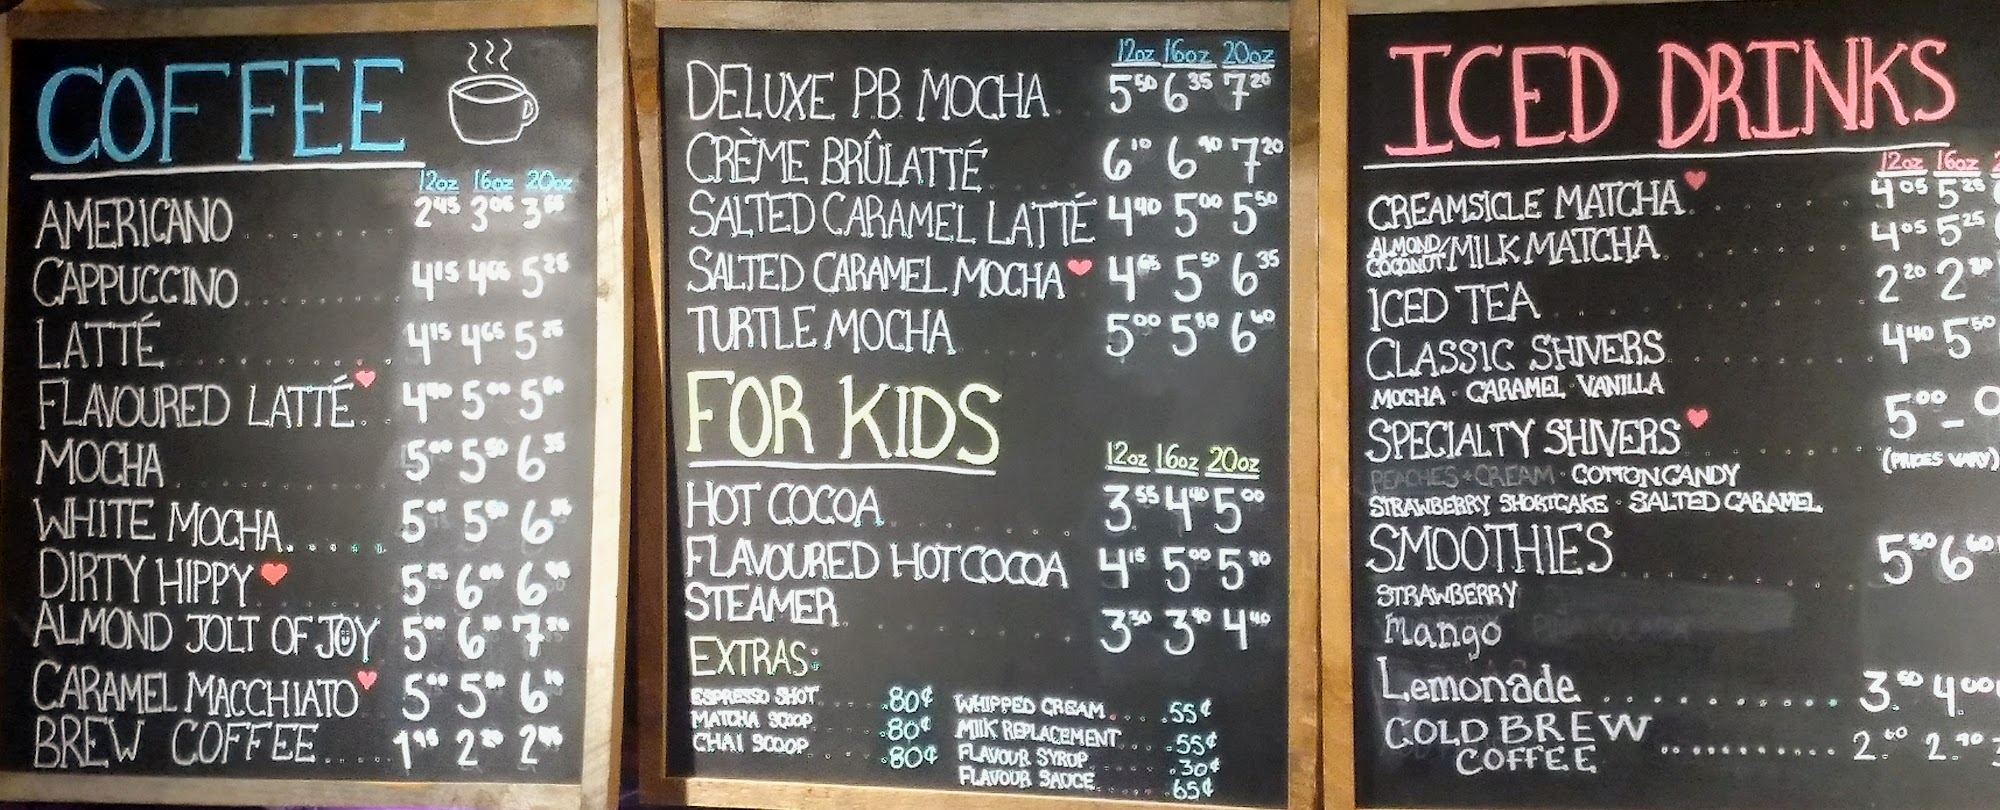 COFFEE
12oz 16oz 20oz
AMERICANO 2.45 3.05 3.65
CAPPUCCINO 4.15 4.65 5.25
LATTÉ 4.15 4.65 5.25
FLAVOURED LATTÉ 4.40 5.00 5.50
MOCHA 5.00 5.50 6.35
WHITE MOCHA 5.00 5.50 6.35
DIRTY HIPPY 5.25 6.05
ALMOND JOLT OF JOY 5.00
CARAMEL MACCHIATO 5.00 5.50 6.10
BREW COFFEE 1.95 2.20 2.45
12oz 16oz 20oz
DELUXE PB MOCHA 5.50 6.35 7.20
CRÈME BRÛLATTÉ 6.10 6.90 7.20
SALTED CARAMEL LATTÉ 4.40 5.00 5.50
SALTED CARAMEL MOCHA 4.65 5.50 6.35
TURTLE MOCHA 5.00 5.80 6.60
FOR KIDS
12oz 16oz 20oz
HOT COCOA 3.55 4.40 5.00
FLAVOURED HOT COCOA 4.15 5.00 5.80
STEAMER 3.30 3.90 4.40
EXTRAS:
ESPRESSO SHOT .80¢
MATCHA SCOOP .80¢
CHAI SCOOP .80¢
WHIPPED CREAM .55¢
MILK REPLACEMENT .55¢
FLAVOUR SYRUP .30¢
FLAVOUR SAUCE .65¢
ICED DRINKS
12oz 16oz
CREAMSICLE MATCHA 4.05 5.25
ALMOND/COCONUT MILK MATCHA 4.05 5.25
ICED TEA 2.20 2.80
CLASSIC SHIVERS 4.40 5.50
MOCHA · CARAMEL · VANILLA
SPECIALTY SHIVERS 5.00 -
(PRICES VARY)
PEACHES + CREAM · COTTON CANDY
STRAWBERRY SHORTCAKE · SALTED CARAMEL
SMOOTHIES 5.50 6.60
STRAWBERRY
Mango
Lemonade 3.50 4.00
COLD BREW COFFEE 2.60 2.90